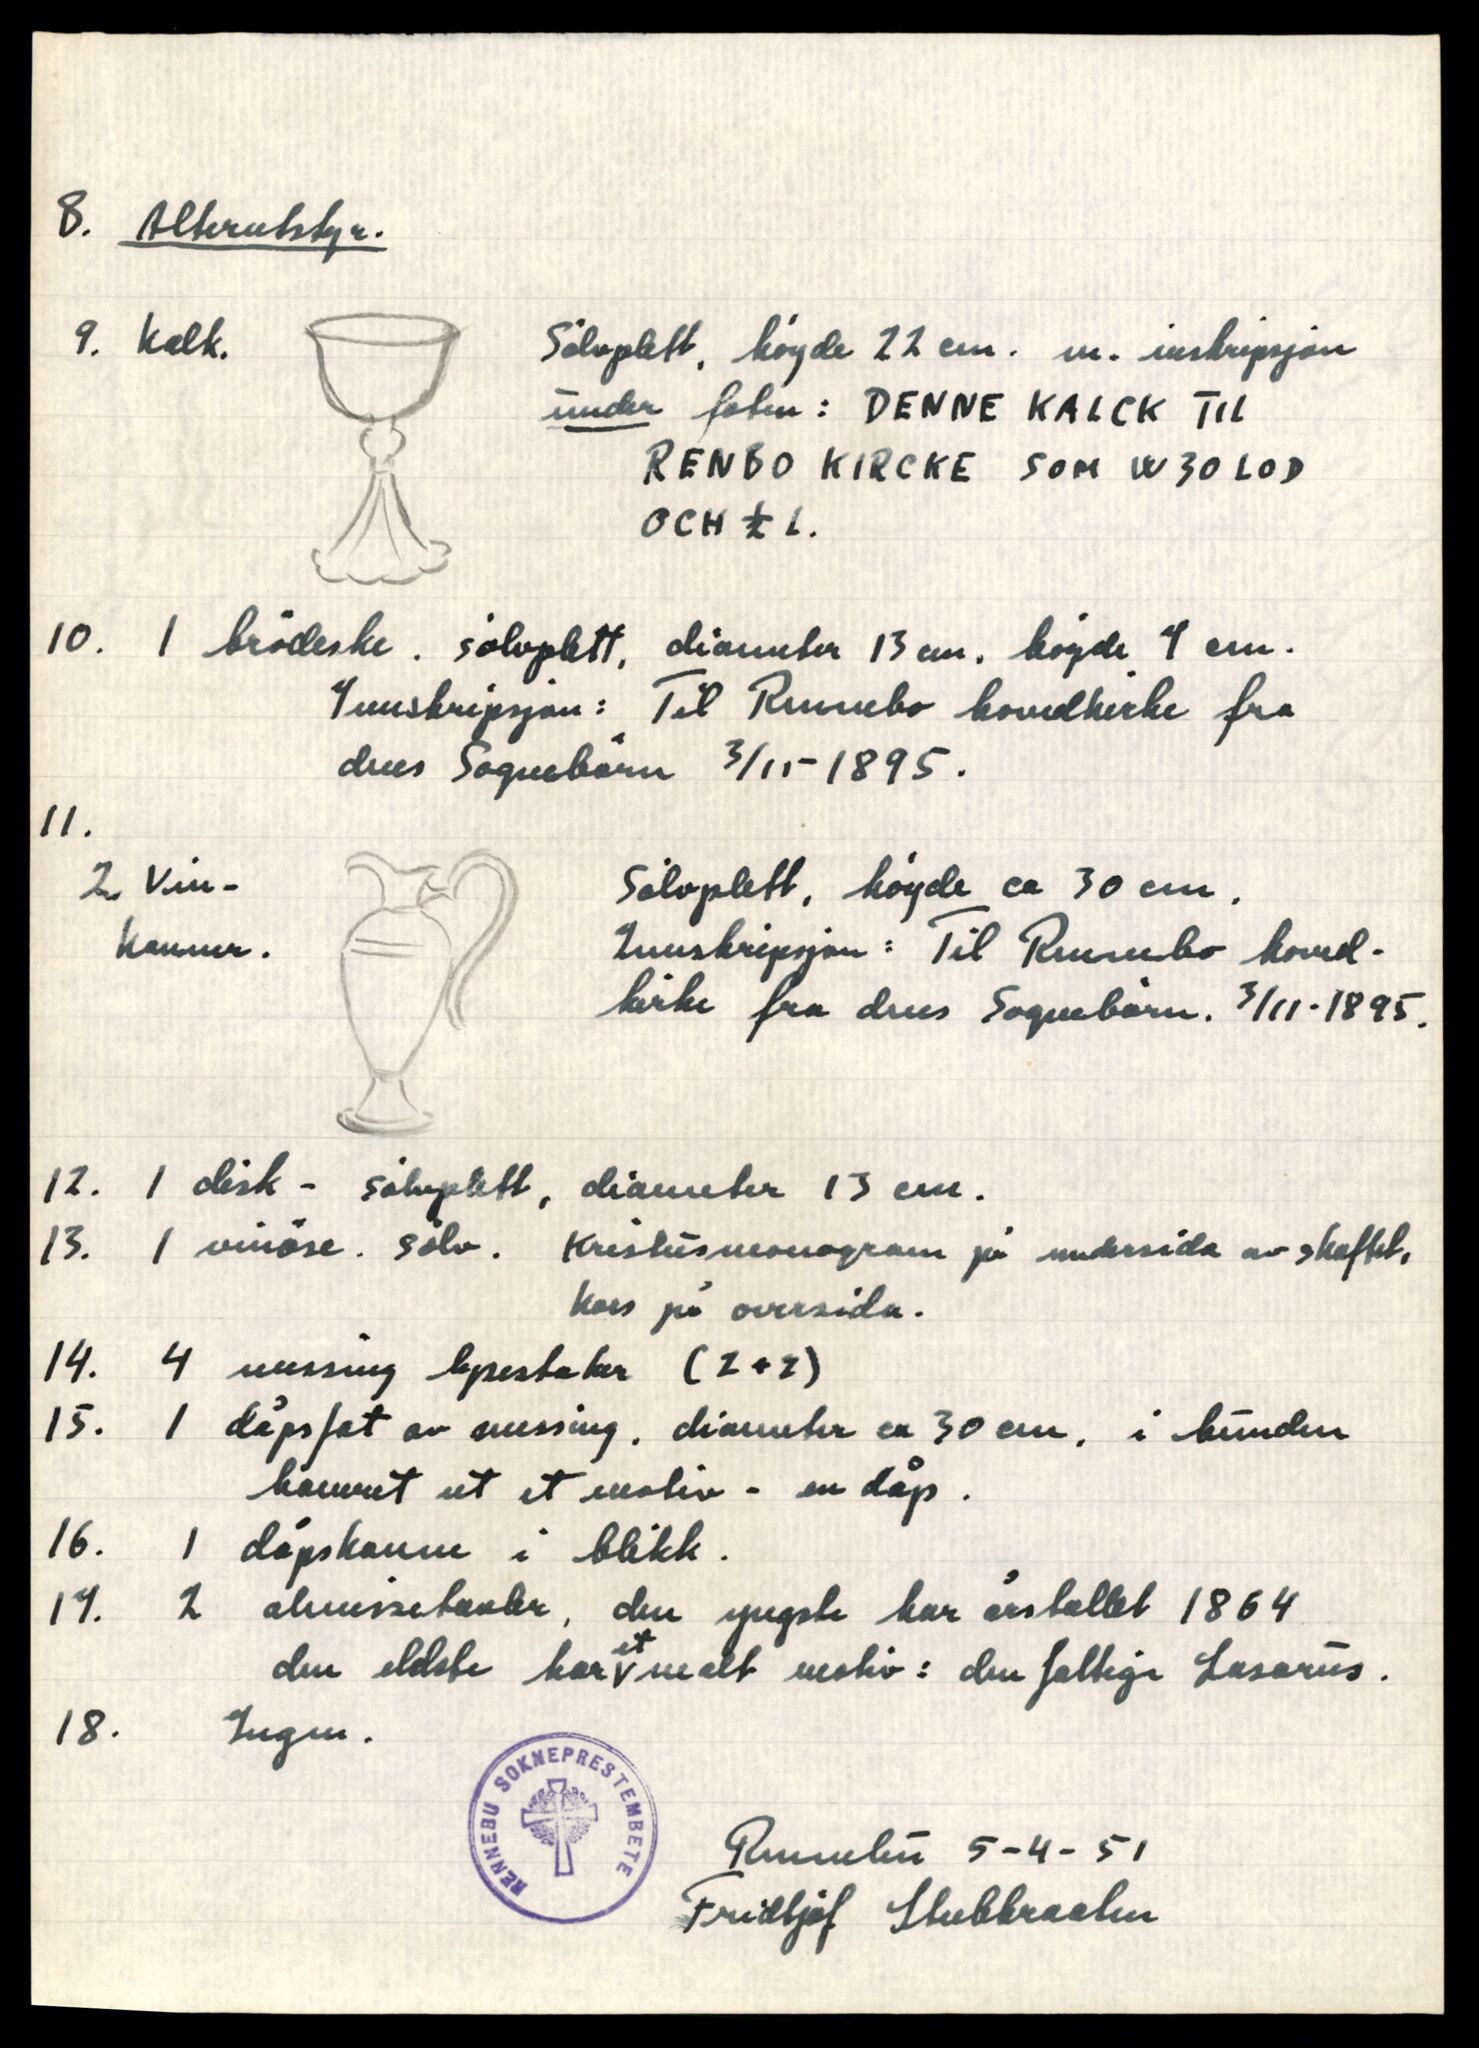 8. Alterutstyr.
9. Kalk.
Sölvplett, höyde 22 cm. m. inskripsjon
under foten: DENNE KALCK TIL
RENBO KIRCKE SOM W 30 LOD
OCH ½ L.
10. 1 brödeske. sölvplett, diameter 13 cm. höyde 7 cm.
Innskripsjon: Til Rennebo hovedkirke fra
dens Sognebörn 3/11-1895.
11.
2 Vin-
kanner.
Sölvplett, höyde ca 30 cm.
Innskripsjon: Til Rennebo hoved-
kirke fra dens Sognebörn. 3/11-1895.
12. 1 disk - sölvplett, diameter 13 cm.
13. 1 vinöse. sölv. Kristusmonogram på undersida av skaftet,
kors på oversida.
14. 4 messing lysestaker (2+2)
15. 1 dåpsfat av messing. diameter ca 30 cm, i bunden
hamret ut et motiv - en dåp.
16. 1 dåpskanne i blikk.
17. 2 almissetavler, den yngste har årstallet 1864
den eldste har et malt motiv: den fattige Lasarus.
18. Ingen.
RENNEBU SOKNEPRESTEMBETE
Rennebu 5-4-51
Fridtjof Stubbraaten